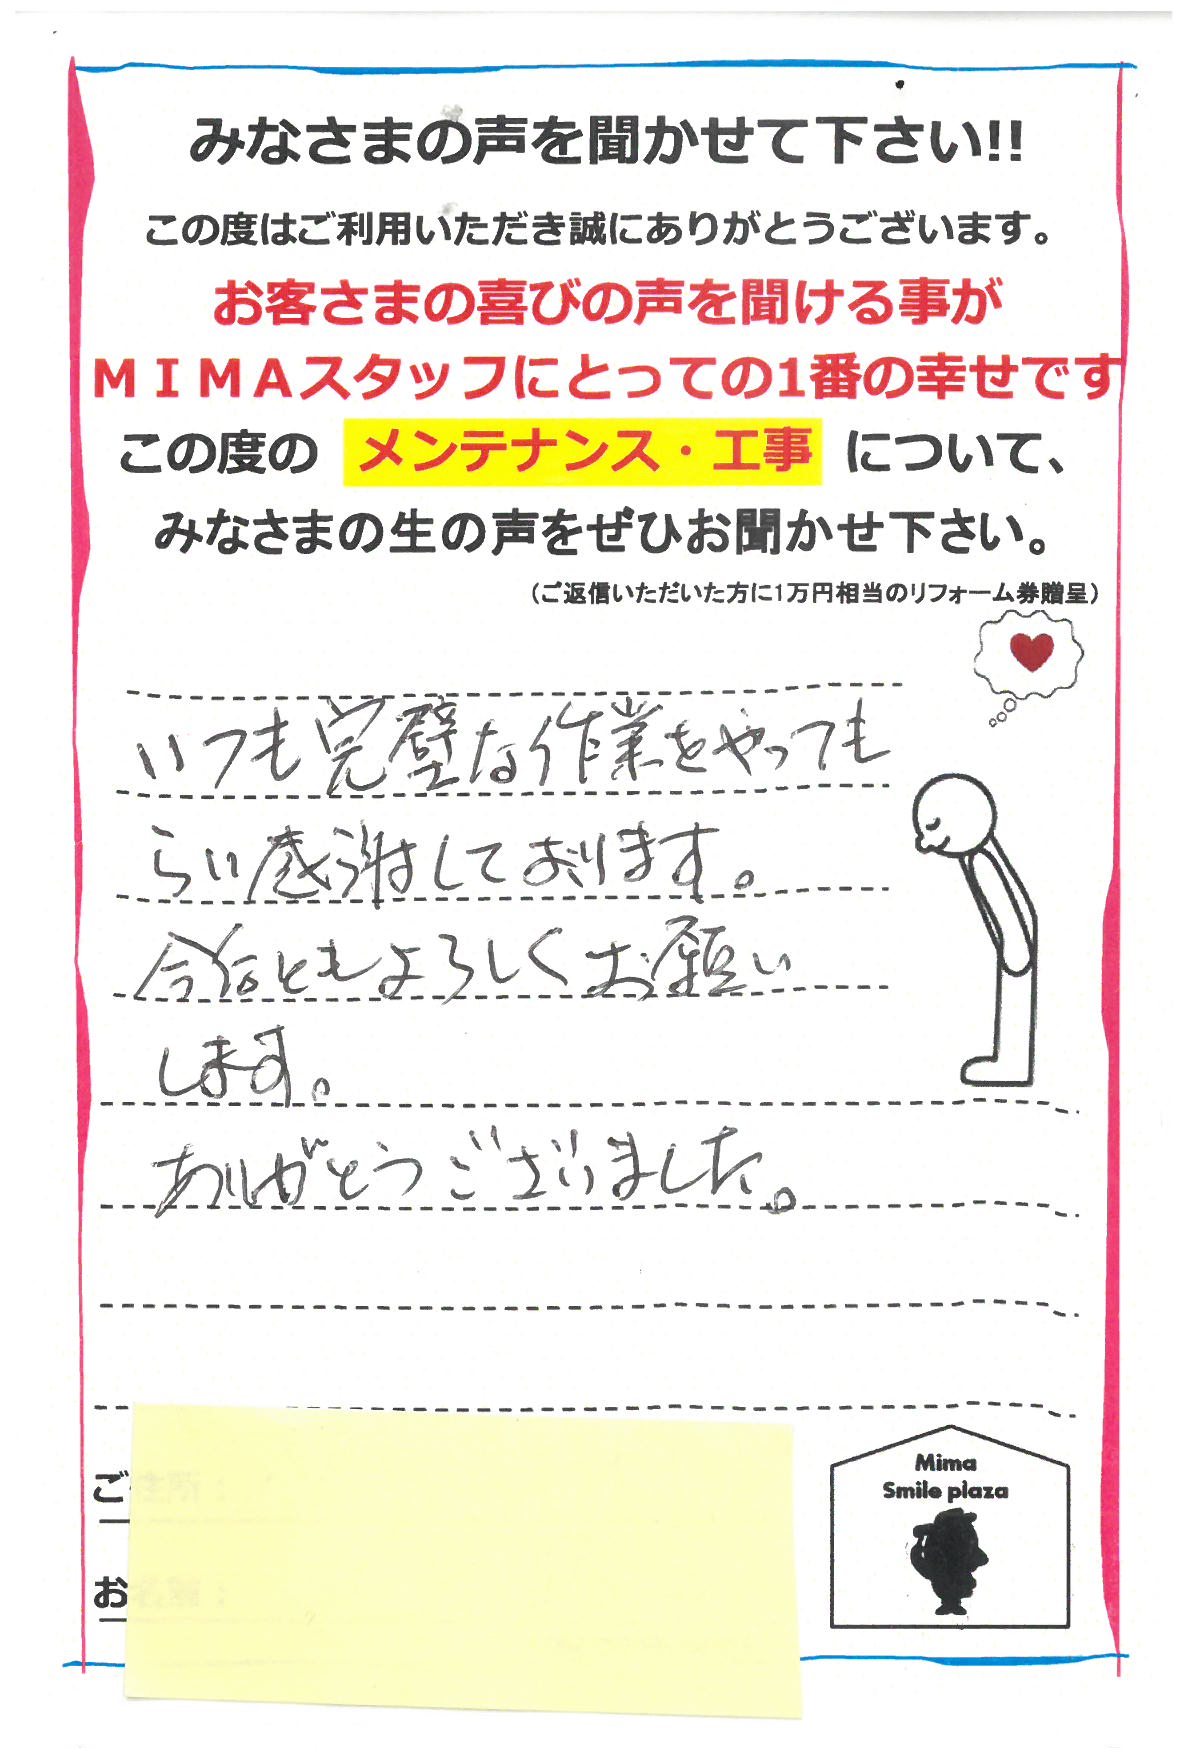 みなさまの声を聞かせて下さい!!
この度はご利用いただき誠にありがとうございます。
お客さまの喜びの声を聞ける事が
ＭＩＭＡスタッフにとっての1番の幸せです
この度の メンテナンス・工事 について、
みなさまの生の声をぜひお聞かせ下さい。
（ご返信いただいた方に1万円相当のリフォーム券贈呈）
いつも完璧な作業をやっても
らい感謝しております。
今后ともよろしくお願い
します。
ありがとうございました。
ご住所：
お名前：
Mima
Smile plaza